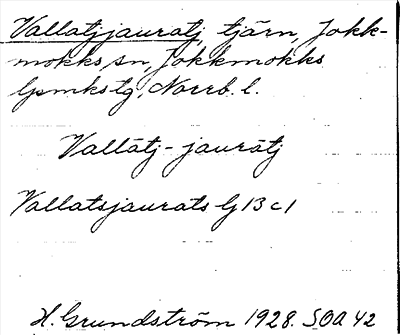 Vallatjjauratj, tjärn, Jokk-
mokks sn, Jokkmokks
lpmkstg, Norrb. l.
Vallātj-jaurātj
Vallatsjaurats lj 13 c 1
H. Grundström 1928. SOA 42